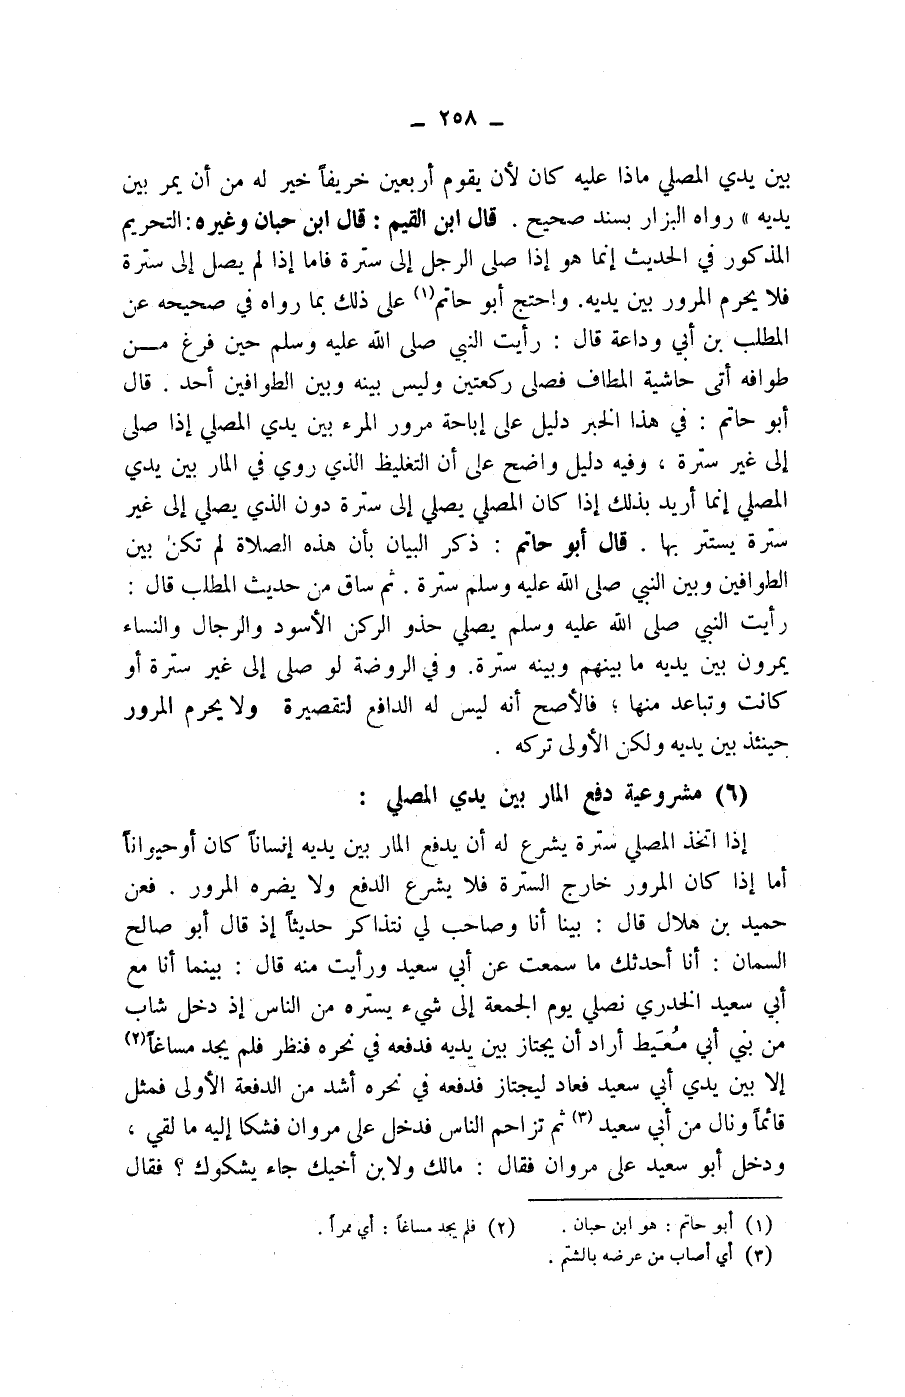 ـ ٢٥٨ ـ
بين يدي المصلي ماذا عليه كان لأن يقوم أربعين خريفاً خير له من أن يمر بين
يديه » رواه البزار بسند صحيح . قال ابن القيم : قال ابن حبان وغيره : التحريم
المذكور في الحديث إنما هو إذا صلى الرجل إلى سترة فاما إذا لم يصل إلى سترة
فلا يحرم المرور بين يديه. واحتج أبو حاتم(١) على ذلك بما رواه في صحيحه عن
المطلب بن أبي وداعة قال : رأيت النبي صلى الله عليه وسلم حين فرغ مــن
طوافه أتى حاشية المطاف فصلى ركعتين وليس بينه وبين الطوافين أحد . قال
أبو حاتم : في هذا الخبر دليل على إباحة مرور المرء بين يدي المصلي إذا صلى
إلى غير سترة ، وفيه دليل واضح على أن التغليظ الذي روي في المار بين يدي
المصلي إنما أريد بذلك إذا كان المصلي يصلي إلى سترة دون الذي يصلي إلى غير
سترة يستتر بها . قال أبو حاتم : ذكر البيان بأن هذه الصلاة لم تكن بين
الطوافين وبين النبي صلى الله عليه وسلم سترة . ثم ساق من حديث المطلب قال :
رأيت النبي صلى الله عليه وسلم يصلي حذو الركن الأسود والرجال والنساء
يمرون بين يديه ما بينهم وبينه سترة. وفي الروضة لو صلى إلى غير سترة أو
كانت وتباعد منها ؛ فالأصح أنه ليس له الدافع لتقصيرة ولا يحرم المرور
حينئذ بين يديه ولكن الأولى تركه .
(٦) مشروعية دفع المار بين يدي المصلي :
إذا اتخذ المصلي سترة يشرع له أن يدفع المار بين يديه إنساناً كان أو حيواناً
أما إذا كان المرور خارج السترة فلا يشرع الدفع ولا يضره المرور . فعن
حميد بن هلال قال : بينا أنا وصاحب لي نتذاكر حديثاً إذ قال أبو صالح
السمان : أنا أحدثك ما سمعت عن أبي سعيد ورأيت منه قال : بينما أنا مع
أبي سعيد الخدري نصلي يوم الجمعة إلى شيء يستره من الناس إذ دخل شاب
من بني أبي مُعَيط أراد أن يجتاز بين يديه فدفعه في نحره فنظر فلم يجد مساغاً(٢)
إلا بين يدي أبي سعيد فعاد ليجتاز فدفعه في نحره أشد من الدفعة الأولى فمثل
قائماً ونال من أبي سعيد (٣) ثم تزاحم الناس فدخل على مروان فشكا إليه ما لقي ،
ودخل أبو سعيد على مروان فقال : مالك ولابن أخيك جاء يشكوك ؟ فقال
(١) أبو حاتم : هو ابن حبان . (٢) فلم يجد مساغاً : أي ممراً .
(٣) أي أصاب من عرضه بالشتم .